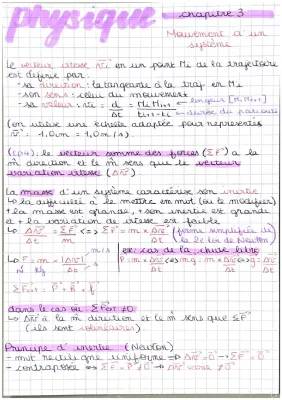 physique
chapitre 3
Mouvement d'un
système
Le vecteur vitesse v⃗i en un point Mi de la trajectoire
est définie par :
- sa direction : la tangeante à la traj. en Mi
- son sens : celui du mouvement
- sa valeur : vi = d/Δt = MiMi+1/ti+1-ti ← longueur [MiMi+1] ← durée du parcours
(on utilise une échelle adaptée pour représenter
v⃗i : 1,0cm = 1,0m/s).
le vecteur somme des forces (ΣF⃗) a la
m̂ direction et le m̂ sens que le vecteur
variation vitesse (Δv⃗)
La masse d'un système caractérise son inertie
↳ la difficulté à le mettre en mvt (ou le modifier)
+ la masse est grande, + son inertie est grande
et + la variation de vitesse est faible.
↳ Δv⃗/Δt = ΣF⃗/m <=> ΣF⃗ = m × Δv⃗/Δt (forme simplifiée de la 2e loi de Newton)
↳ F = m × |Δv⃗|/Δt
m/s
N kg
ex: cas de la chute libre
P = m × Δv⃗/Δt <=> m·g = m × Δv⃗/Δt <=> g = Δv⃗/Δt
ΣF⃗ext = P⃗ + R⃗ + f⃗
dans le cas où ΣF⃗ext ≠ 0
↳ Δv⃗ a la m̂ direction et le m̂ sens que ΣF⃗
(ils sont colinéaires)
Principe d'inertie (Newton)
- mvt rectiligne uniforme => Δv⃗ = 0⃗ → ΣF⃗ = 0⃗
- contraposée <=> ΣF⃗ ≠ 0⃗ => Δv⃗ varie ≠ 0⃗